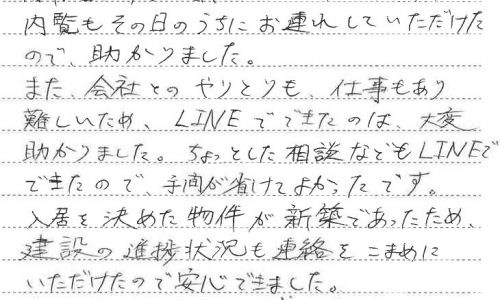 内覧もその日のうちにお連れしていただけた
ので、助かりました。
また、会社とのやりとりも、仕事もあり
難しいため、LINEでできたのは、大変
助かりました。ちょっとした相談などもLINEで
できたので、手間が省けてよかったです。
入居を決めた物件が新築であったため、
建設の進捗状況も連絡をこまめに
いただけたので安心できました。